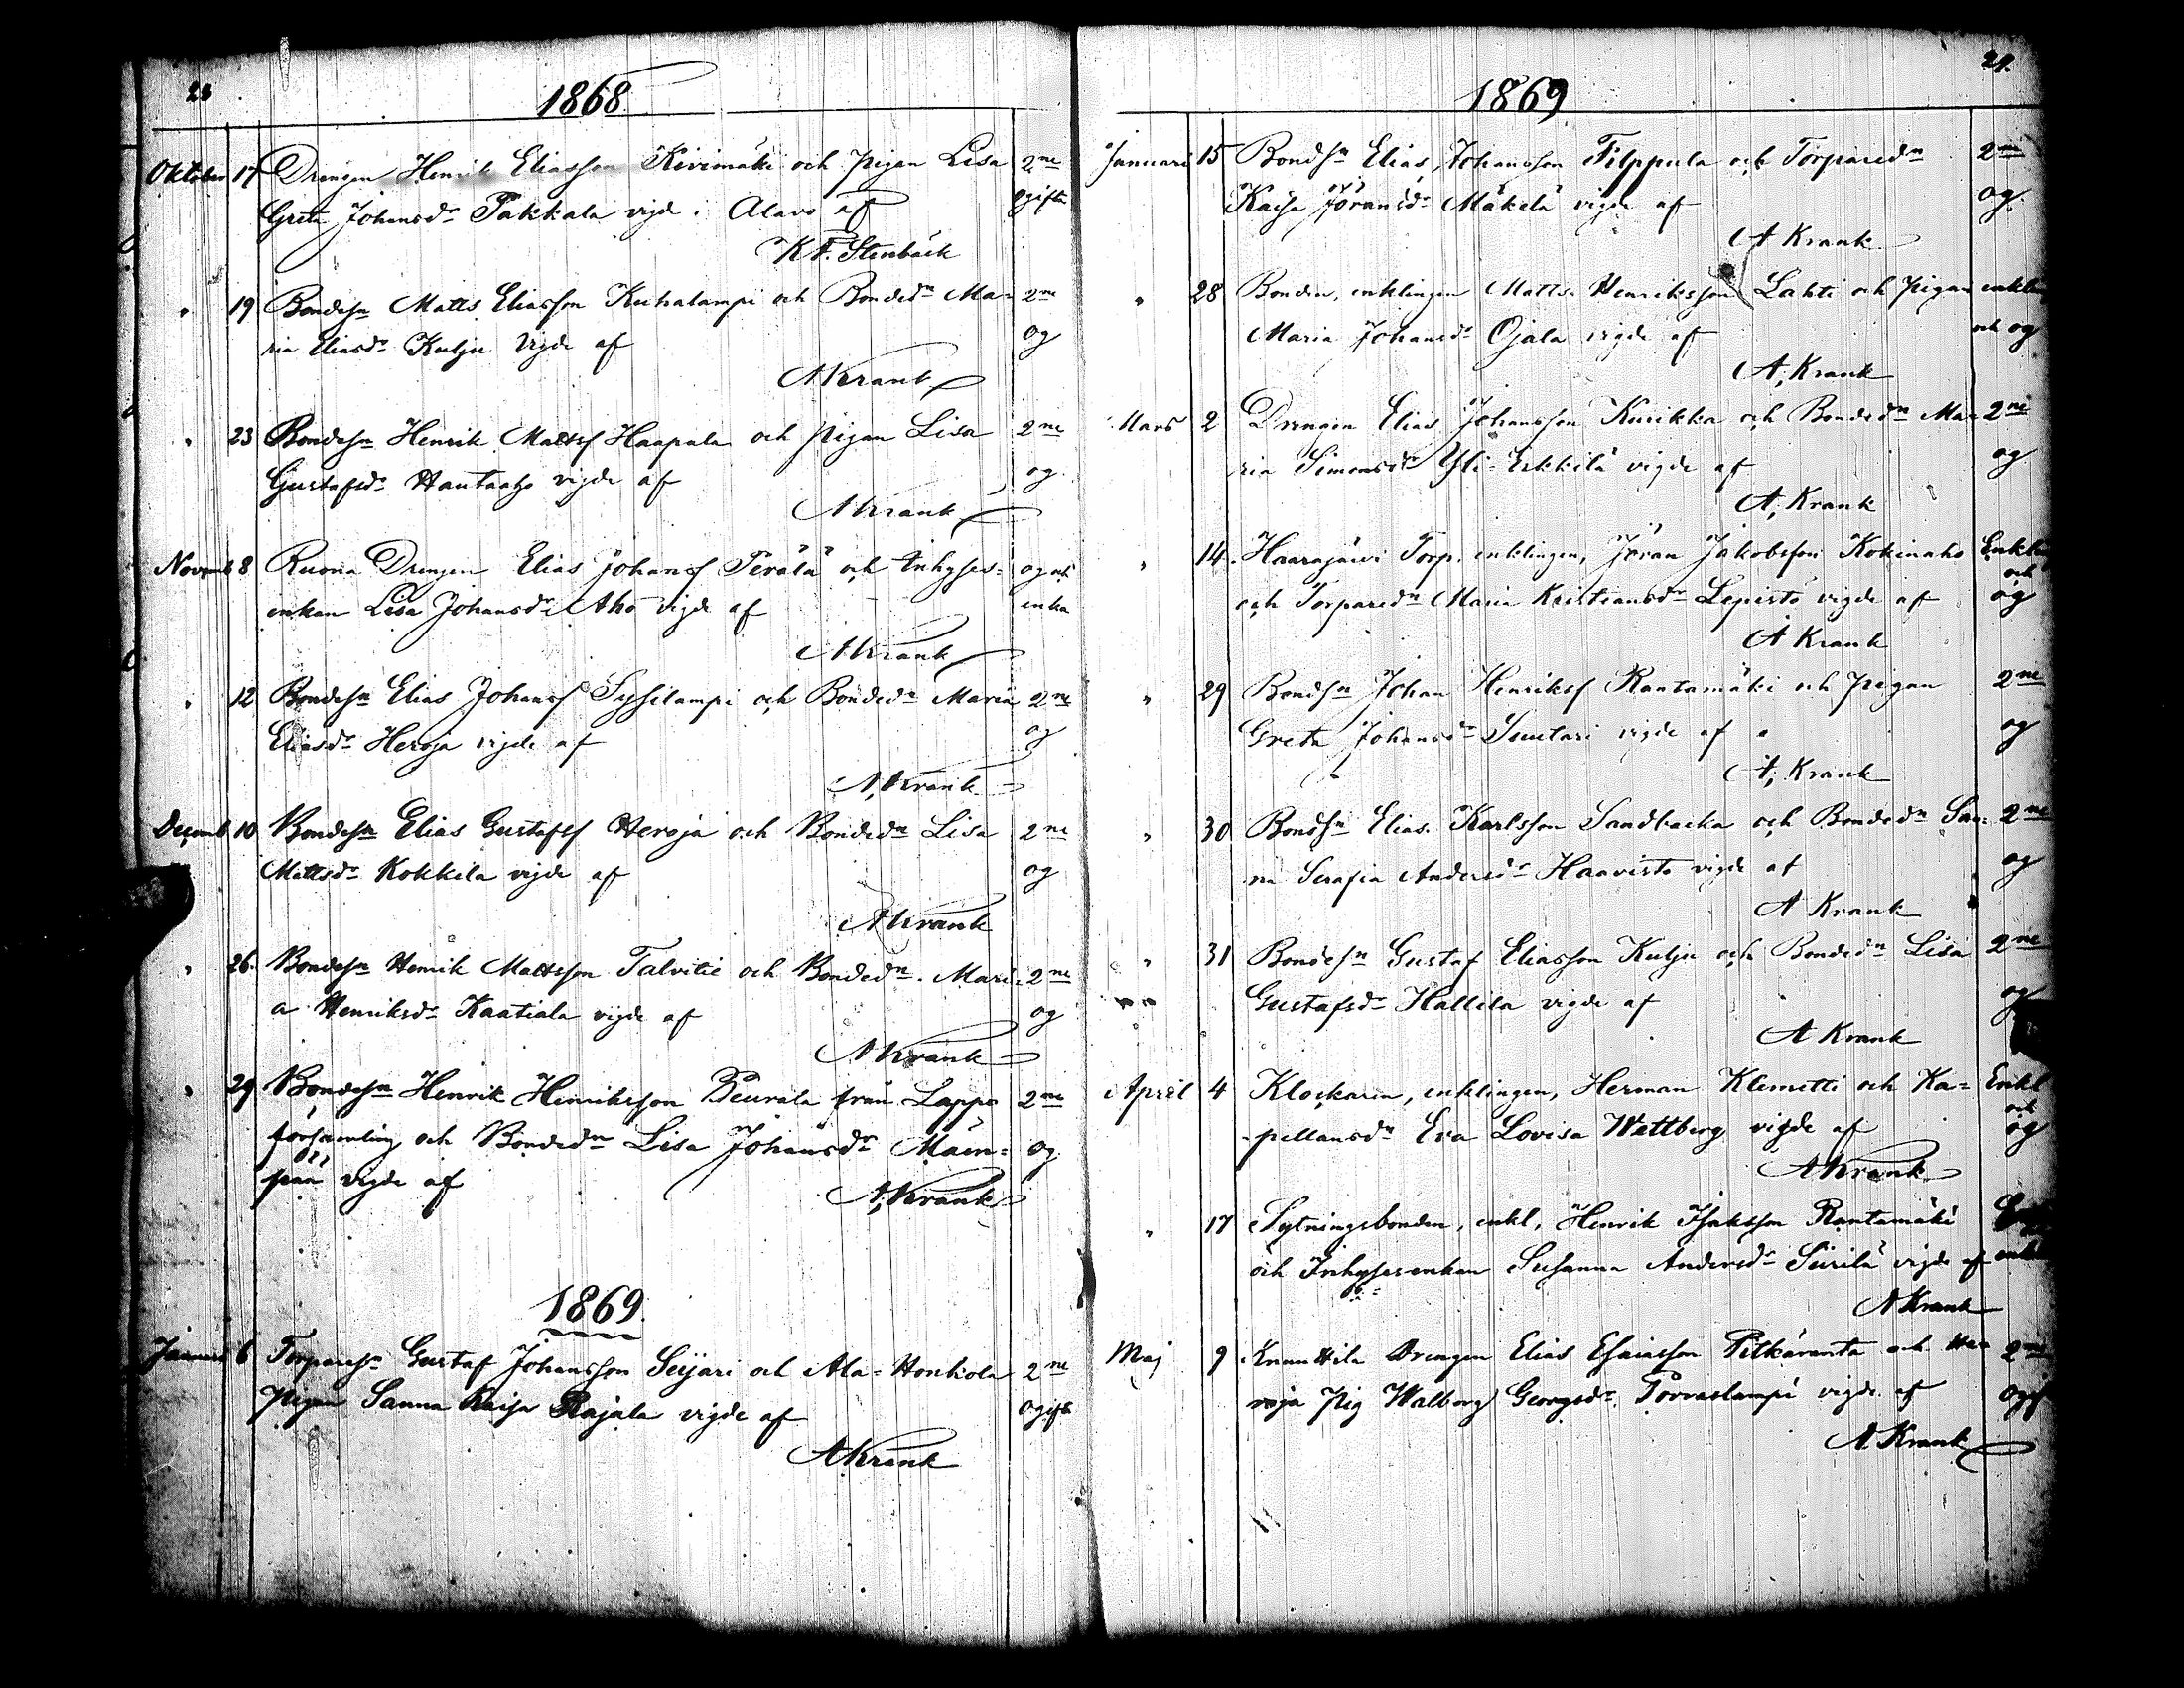 28
1868
Oktober 17 Drengen Henrik Eliasson Kivimäki och pigan Lisa 2ne
Greta Johansdr Pakkala vigde i Alavo af ogifta
K F. Stenbäck
" 19 Bondesn Matts Eliasson Kuhalampi och Bondedn Ma- 2ne
ria Eliasdr Kulju vigde af og
A Krank
" 23 Bondesn Henrik Mattsf Haapala och pigan Lisa 2ne
Gustafsdr Hautaaho vigde af og
A Krank
Novemb 8 Ruona Drengen Elias Johansf Perälä och Inhyses- og och
enkan Lisa Johansdr Aho vigde af enka
A Krank
" 12 Bondesn Elias Johansf Syssilampi och Bondedn Maria 2ne
Eliasdr Heroja vigde af og
A, Krank
Decemb 10 Bondesn Elias Gustafsf Heroja och Bondedn Lisa 2ne
Mattsdr Kokkila vigde af og
A Krank
" 26. Bondesn Henrik Mattsson Talvitie och Bondedn. Mari- 2ne
a Henriksdr Kaatiala vigde af og
A Krank
" 29 Bondesn Henrik Henriksson Peurala från Lappo 2ne
församling och Bondedn Lisa Johansdr Mäen- og.
pää vigde af
A, Krank
1869.
Januari 6 Torparesn Gustaf Johansson Seijari och Ala-Honkola 2ne
Pigan Sanna Kaisa Rajala vigde af ogift
A Krank
29.
1869
Januari 15 Bondsn Elias Johansson Filppula och Torparedn 2ne
Kaisa Jöransdr Mäkelä vigde af og.
A Krank
" 28 Bonden, enklingen Matts Henriksson Lahti och Pigan enkl
Maria Johansdr Ojala vigde af och og
A, Krank
Mars 2 Drengen Elias Johansson Kurikka och Bondedn Ma- 2ne
ria Simonsdr Yli-Erkkilä vigde af og
A, Krank
" 14. Haarajärvi Torp. enklingen, Jöran Jakobsson Kokinaho Enkl
och
och Torparedn Maria Kristiansdr Lepistö vigde af og
A Krank
" 29 Bondsn Johan Henriksf Rantamäki och pigan 2ne
Greta Johansdr Suutari vigde af og
A, Krank
" 30 Bondsn Elias Karlsson Sandbacka och Bondedn San- 2ne
na Serafia Andersdr Haavisto vigde af og
A Krank
" 31 Bondesn Gustaf Eliasson Kulju och Bondedn Lisa 2ne
Gustafsdr Hallila vigde af og
A Krank
April 4 Klockaren, enklingen, Herman Klemetti och Ka- Enkl
och
pellansdn Eva Lovisa Wettberg vigde af og
A Krank
" 17 Sytningsbonden, enkl, Henrik Isaksson Rantamäki
och Inhysesenkan Susanna Andersdr Siirilä vigde af
A Krank
Maj 9 Knuuttila Drengen Elias Esaiasson Pitkäranta och He- 2ne
roja Pig Walborg Georgsdr. Porraslampi vigde af ogif
A Krank